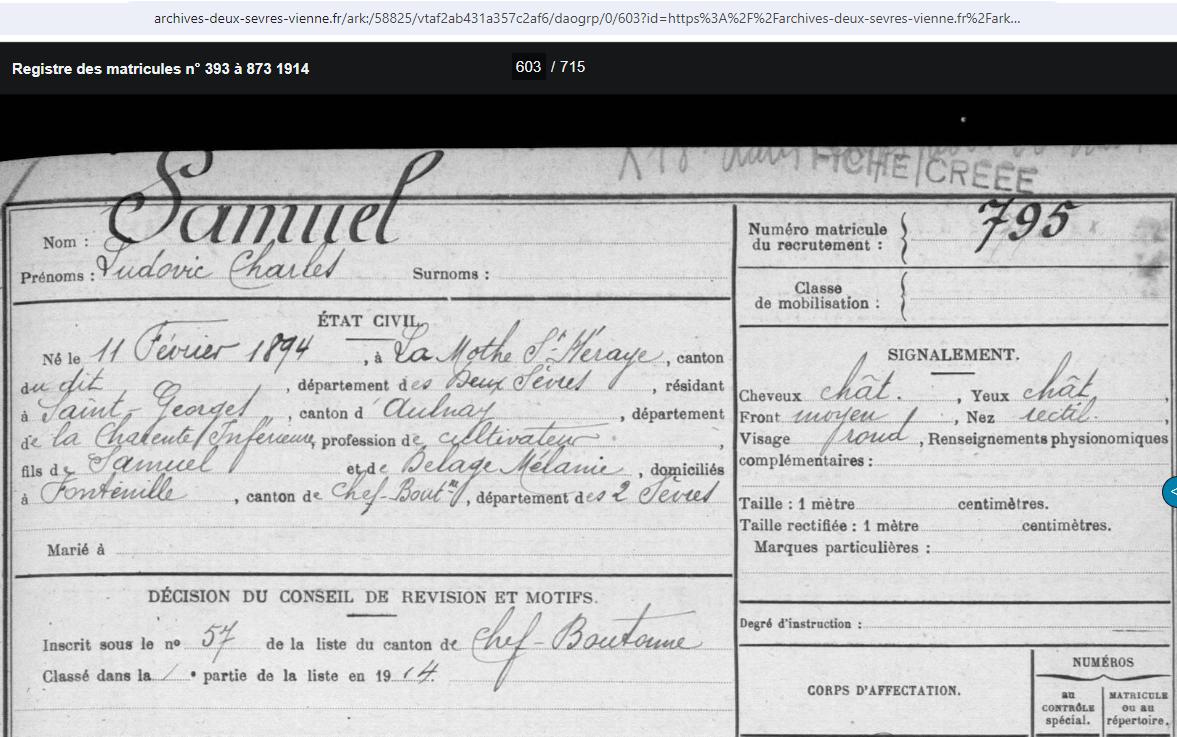 archives-deux-sevres-vienne.fr/ark:/58825/vtaf2ab431a357c2af6/daogrp/0/603?id=https%3A%2F%2Farchives-deux-sevres-vienne.fr%2Fark...
Registre des matricules n° 393 à 873 1914
603 / 715
FICHE CREEE
Nom : Samuel
Prénoms : Ludovic Charles Surnoms :
ÉTAT CIVIL.
Né le 11 Février 1894, à La Mothe St Héraye, canton
du dit, département des Deux Sèvres, résidant
à Saint Georges, canton d'Aulnay, département
de la Charente Inférieure, profession de cultivateur,
fils de Samuel et de Belage Mélanie, domiciliés
à Fontenille, canton de Chef-Boutne, département des 2 Sèvres
Marié à
DÉCISION DU CONSEIL DE REVISION ET MOTIFS.
Inscrit sous le no 57 de la liste du canton de Chef-Boutonne
Classé dans la 1e partie de la liste en 1914.
Numéro matricule
du recrutement : 795
Classe
de mobilisation :
SIGNALEMENT.
Cheveux chât., Yeux chât,
Front moyen, Nez rectil.
Visage rond, Renseignements physionomiques
complémentaires :
Taille : 1 mètre centimètres.
Taille rectifiée : 1 mètre centimètres.
Marques particulières :
Degré d'instruction :
CORPS D'AFFECTATION.
NUMÉROS
au
CONTRÔLE
spécial.
MATRICULE
ou au
répertoire.